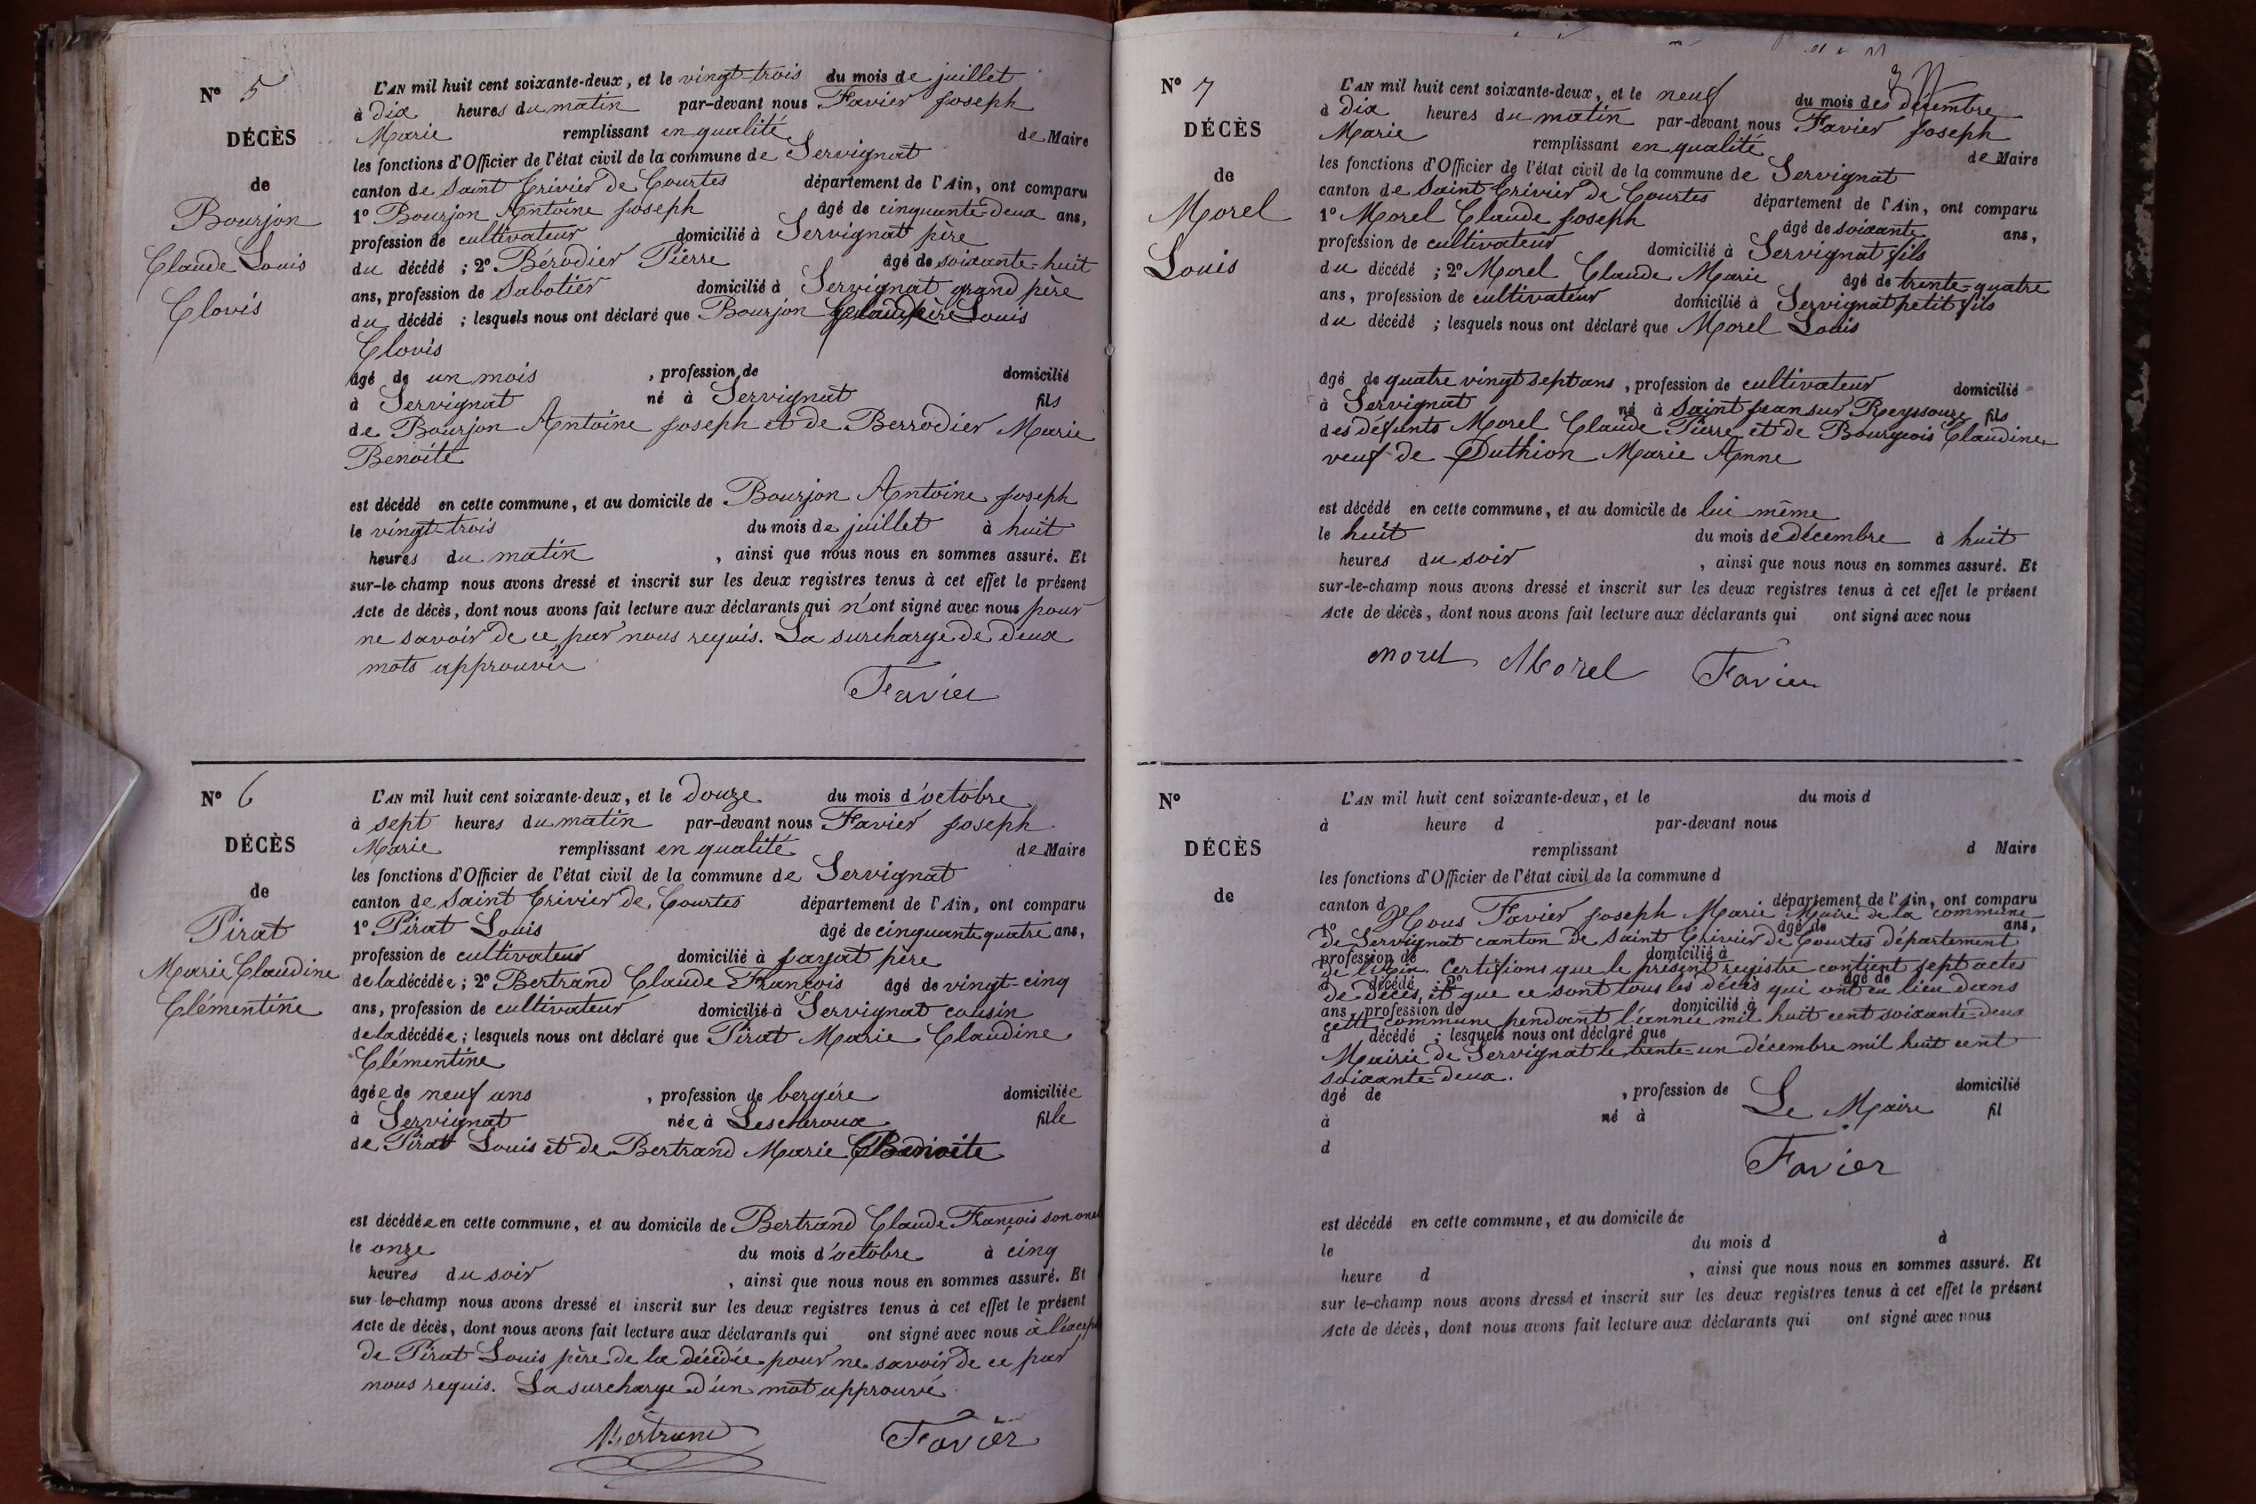 N° 5
DÉCÈS
de
Bourjon
Claude Louis
Clovis
L'AN mil huit cent soixante-deux, et le vingt trois du mois de juillet
à dix heures du matin par-devant nous Favier Joseph
Marie remplissant en qualité de Maire
les fonctions d'Officier de l'état civil de la commune de Servignat
canton de Saint Trivier de Courtes département de l'Ain, ont comparu
1° Bourjon Antoine Joseph âgé de cinquante-deux ans,
profession de cultivateur domicilié à Servignat père
du décédé ; 2° Bérodier Pierre âgé de soixante-huit
ans, profession de Sabotier domicilié à Servignat grand père
du décédé ; lesquels nous ont déclaré que Bourjon Claude Louis
Clovis
âgé de un mois , profession de domicilié
à Servignat né à Servignat fils
de Bourjon Antoine Joseph et de Berrodier Marie
Benoite
est décédé en cette commune, et au domicile de Bourjon Antoine Joseph
le vingt trois du mois de juillet à huit
heures du matin , ainsi que nous nous en sommes assuré. Et
sur-le-champ nous avons dressé et inscrit sur les deux registres tenus à cet effet le présent
Acte de décès, dont nous avons fait lecture aux déclarants qui n'ont signé avec nous pour
ne savoir de ce par nous requis. La surcharge de deux
mots approuvée
Favier
N° 6
DÉCÈS
de
Pirat
Marie Claudine
Clémentine
L'AN mil huit cent soixante-deux, et le douze du mois d'octobre
à sept heures du matin par-devant nous Favier Joseph
Marie remplissant en qualité de Maire
les fonctions d'Officier de l'état civil de la commune de Servignat
canton de Saint Trivier de Courtes département de l'Ain, ont comparu
1° Pirat Louis âgé de cinquante quatre ans,
profession de cultivateur domicilié à Jayat père
de la décédée ; 2° Bertrand Claude François âgé de vingt-cinq
ans, profession de cultivateur domicilié à Servignat cousin
de la décédée ; lesquels nous ont déclaré que Pirat Marie Claudine
Clémentine
âgée de neuf ans , profession de bergère domiciliée
à Servignat née à Lescheroux fille
de Pirat Louis et de Bertrand Marie Benoite
est décédée en cette commune, et au domicile de Bertrand Claude François son
le onze du mois d'octobre à cinq
heures du soir , ainsi que nous nous en sommes assuré. Et
sur-le-champ nous avons dressé et inscrit sur les deux registres tenus à cet effet le présent
Acte de décès, dont nous avons fait lecture aux déclarants qui ont signé avec nous à
de Pirat Louis père de la décédée pour ne savoir de ce par
nous requis. La surcharge d'un mot approuvé
Bertrand Favier
N° 7
DÉCÈS
de
Morel
Louis
L'AN mil huit cent soixante-deux, et le neuf du mois de décembre
à dix heures du matin par-devant nous Favier Joseph
Marie remplissant en qualité de Maire
les fonctions d'Officier de l'état civil de la commune de Servignat
canton de Saint Trivier de Courtes département de l'Ain, ont comparu
1° Morel Claude Joseph âgé de soixante ans,
profession de cultivateur domicilié à Servignat fils
du décédé ; 2° Morel Claude Marie âgé de trente-quatre
ans, profession de cultivateur domicilié à Servignat petit fils
du décédé ; lesquels nous ont déclaré que Morel Louis
âgé de quatre vingt sept ans , profession de cultivateur domicilié
à Servignat né à Saint Jean sur Reyssouze fils
des défunts Morel Claude Pierre et de Bourgeois Claudine
veuf de Duthion Marie Anne
est décédé en cette commune, et au domicile de lui même
le huit du mois de décembre à huit
heures du soir , ainsi que nous nous en sommes assuré. Et
sur-le-champ nous avons dressé et inscrit sur les deux registres tenus à cet effet le présent
Acte de décès, dont nous avons fait lecture aux déclarants qui ont signé avec nous
morel Morel Favier
N°
DÉCÈS
de
L'AN mil huit cent soixante-deux, et le du mois d
à heure d par-devant nous
remplissant d Maire
les fonctions d'Officier de l'état civil de la commune d
canton d département de l'Ain, ont comparu
Nous Favier Joseph Marie Maire de la commune
1° âgé de ans,
de Servignat canton de Saint Trivier de Courtes département
profession de domicilié à
de l'Ain. Certifions que le présent registre contient sept actes
d décédé ; 2° âgé de
de décès, et que ce sont tous les décès qui ont eu lieu dans
ans, profession de domicilié à
cette commune pendant l'année mil huit cent soixante-deux
d décédé ; lesquels nous ont déclaré que
Mairie de Servignat le trente-un décembre mil huit cent
soixante-deux.
âgé de , profession de domicilié
Le Maire
à né à fil
d
Favier
est décédé en cette commune, et au domicile de
le du mois d à
heure d , ainsi que nous nous en sommes assuré. Et
sur le-champ nous avons dressé et inscrit sur les deux registres tenus à cet effet le présent
Acte de décès, dont nous avons fait lecture aux déclarants qui ont signé avec nous